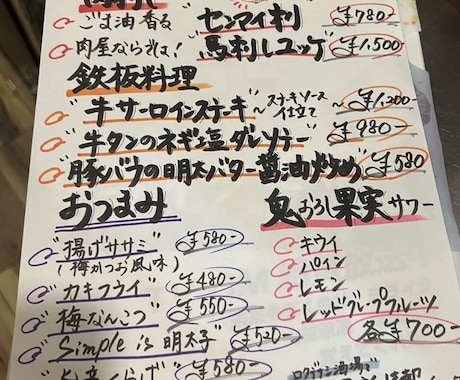 ごま油香る
"センマイ刺" ¥780-
肉屋ならでは!
"馬刺しユッケ" ¥1,500-
鉄板料理
"牛サーロインステーキ" ~ステーキソース仕立て~ ¥1,200-
"牛タンのネギ塩ダレソテー" ¥980-
"豚バラの明太バター醤油炒め" ¥580
おつまみ
"揚げササミ" ¥580-
(梅かつお風味)
"カキフライ" ¥480-
"梅なんこつ" ¥550-
"Simple is 明太子" ¥520-
¥580-
鬼おろし果実サワー
キウイ
パイン
レモン
レッドグレープフルーツ
各¥700-